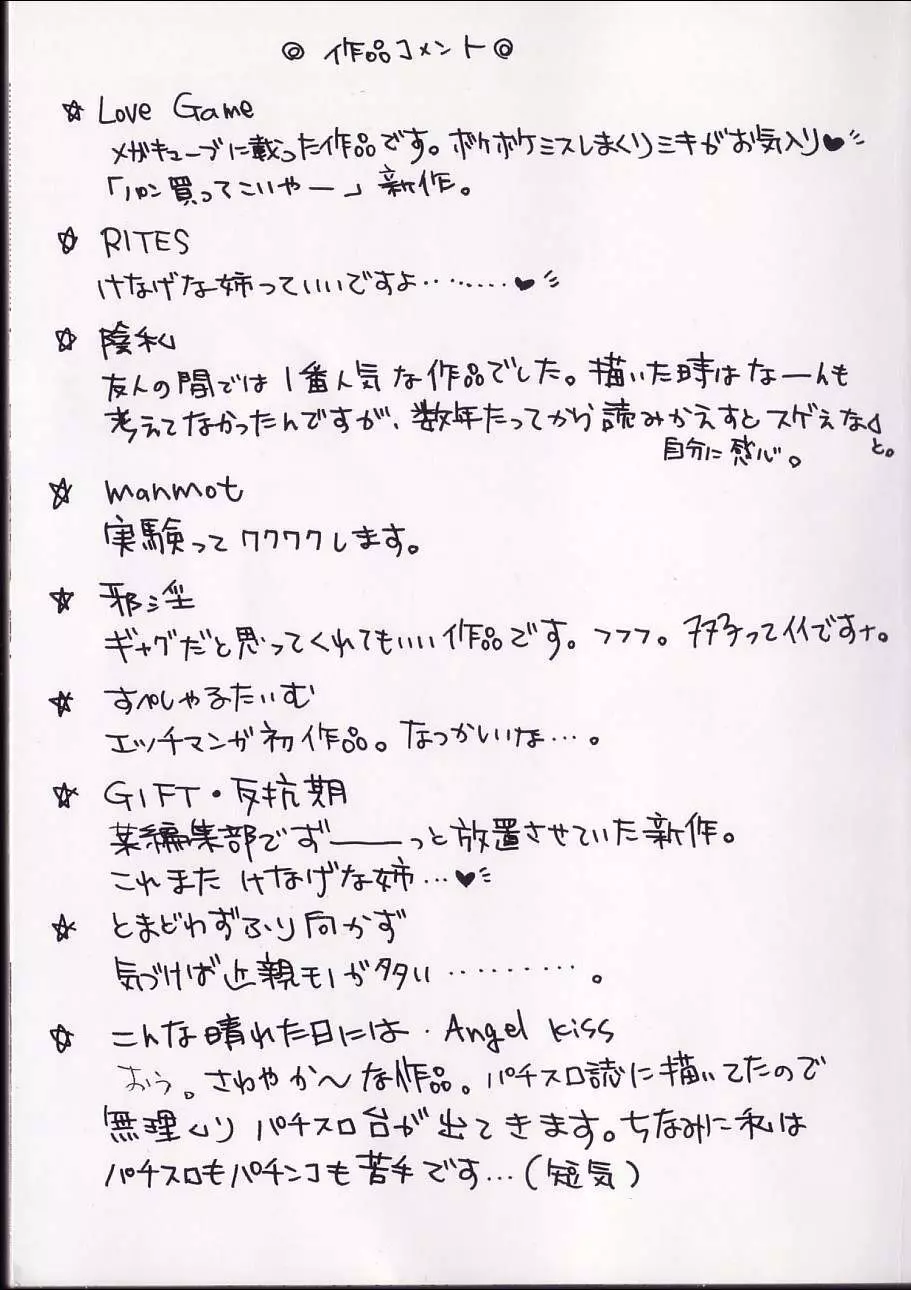 ◎ 作品コメント ◎
☆ Love Game
メガキューブに載った作品です。ボケボケミスしまくりミキがお気入り♥
「パン買ってこいやー」新作。
☆ RITES
けなげな姉っていいですよ‥‥‥‥♥
☆ 陰私
友人の間では1番人気な作品でした。描いた時はなーんも
考えてなかったんですが、数年たってから読みかえすとスゲぇな
と。
自分に感心。
☆ manmot
実験ってワクワクします。
☆ 邪淫
ギャグだと思ってくれてもいい作品です。フフフ。フタナってイイですナ。
☆ すぺしゃるたいむ
エッチマンガ初作品。なつかいいな…。
☆ GIFT・反抗期
某編集部でずーーーっと放置させていた新作。
これまた けなげな姉…♥
☆ とまどわずふり向かず
気づけば近親モノが多い‥‥‥‥‥。
☆ こんな晴れた日には・Angel kiss
おう。さわやか〜な作品。パチスロ誌に描いてたので
無理くり パチスロ台が出てきます。ちなみに私は
パチスロもパチンコも苦手です…(短気)